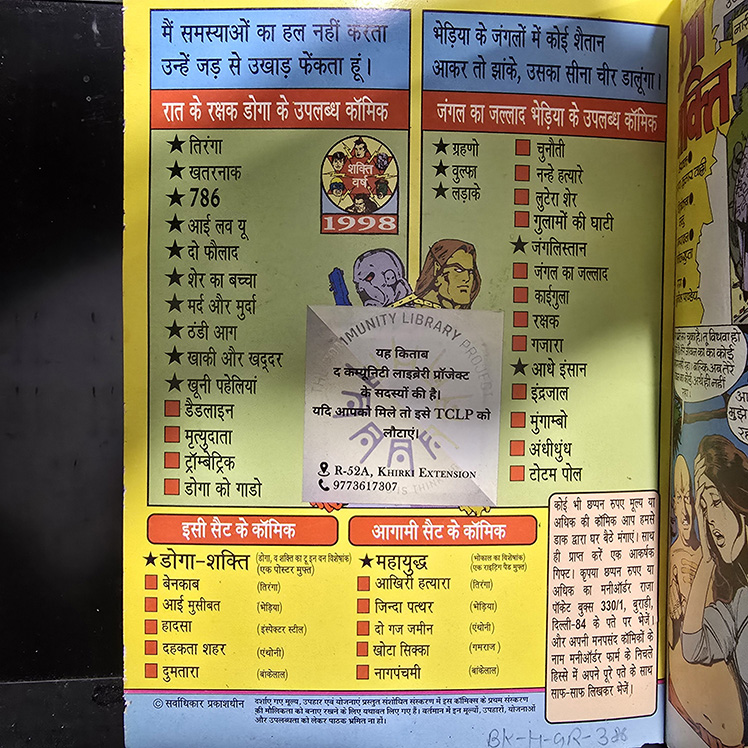 मैं समस्याओं का हल नहीं करता
उन्हें जड़ से उखाड़ फेंकता हूं।
रात के रक्षक डोगा के उपलब्ध कॉमिक
★ तिरंगा
★ खतरनाक
★ 786
★ आई लव यू
★ दो फौलाद
★ शेर का बच्चा
★ मर्द और मुर्दा
★ ठंडी आग
★ खाकी और खद्दर
★ खूनी पहेलियां
डैडलाइन
मृत्युदाता
ट्रॉम्बेट्रिक
डोगा को गाडो
शक्ति
वर्ष
1998
भेड़िया के जंगलों में कोई शैतान
आकर तो झांके, उसका सीना चीर डालूंगा।
जंगल का जल्लाद भेड़िया के उपलब्ध कॉमिक
★ ग्रहणो
★ वुल्फा
★ लड़ाके
चुनौती
नन्हे हत्यारे
लुटेरा शेर
गुलामों की घाटी
★ जंगलिस्तान
जंगल का जल्लाद
काईगुला
रक्षक
गजारा
★ आधे इंसान
इंद्रजाल
मुंगाम्बो
अंधीधुंध
टोटम पोल
THE COMMUNITY LIBRARY PROJECT
यह किताब
द कम्युनिटी लाइब्रेरी प्रॉजेक्ट
के सदस्यों की है।
यदि आपको मिले तो इसे TCLP को
लौटाएं।
R-52A, KHIRKI EXTENSION
9773617307
इसी सैट के कॉमिक
★ डोगा-शक्ति (डोगा, व शक्ति का टू इन वन विशेषांक)
(एक पोस्टर मुफ्त)
बेनकाब (तिरंगा)
आई मुसीबत (भेड़िया)
हादसा (इंस्पेक्टर स्टील)
दहकता शहर (एंथोनी)
दुमतारा (बांकेलाल)
आगामी सैट के कॉमिक
★ महायुद्ध (भोकाल का विशेषांक)
(एक राइटिंग पैड मुफ्त)
आखिरी हत्यारा (तिरंगा)
जिन्दा पत्थर (भेड़िया)
दो गज जमीन (एंथोनी)
खोटा सिक्का (गमराज)
नागपंचमी (बांकेलाल)
कोई भी छप्पन रुपए मूल्य या
अधिक की कॉमिक आप हमसे
डाक द्वारा घर बैठे मंगाएं। साथ
ही प्राप्त करें एक आकर्षक
गिफ्ट। कृपया छप्पन रुपए या
अधिक का मनीऑर्डर राजा
पॉकेट बुक्स 330/1, बुराड़ी,
दिल्ली-84 के पते पर भेजें।
और अपनी मनपसंद कॉमिकों के
नाम मनीऑर्डर फार्म के निचले
हिस्से में अपने पूरे पते के साथ
साफ-साफ लिखकर भेजें।
© सर्वाधिकार प्रकाशधीन
दर्शाए गए मूल्य, उपहार एवं योजनाएं प्रस्तुत संशोधित संस्करण में इस कॉमिक्स के प्रथम संस्करण
की मौलिकता को बनाए रखने के लिए यथावत लिए गए हैं। वर्तमान में इन मूल्यों, उपहारों, योजनाओं
और उपलब्धता को लेकर पाठक भ्रमित ना हों।
BK-H-GR-386